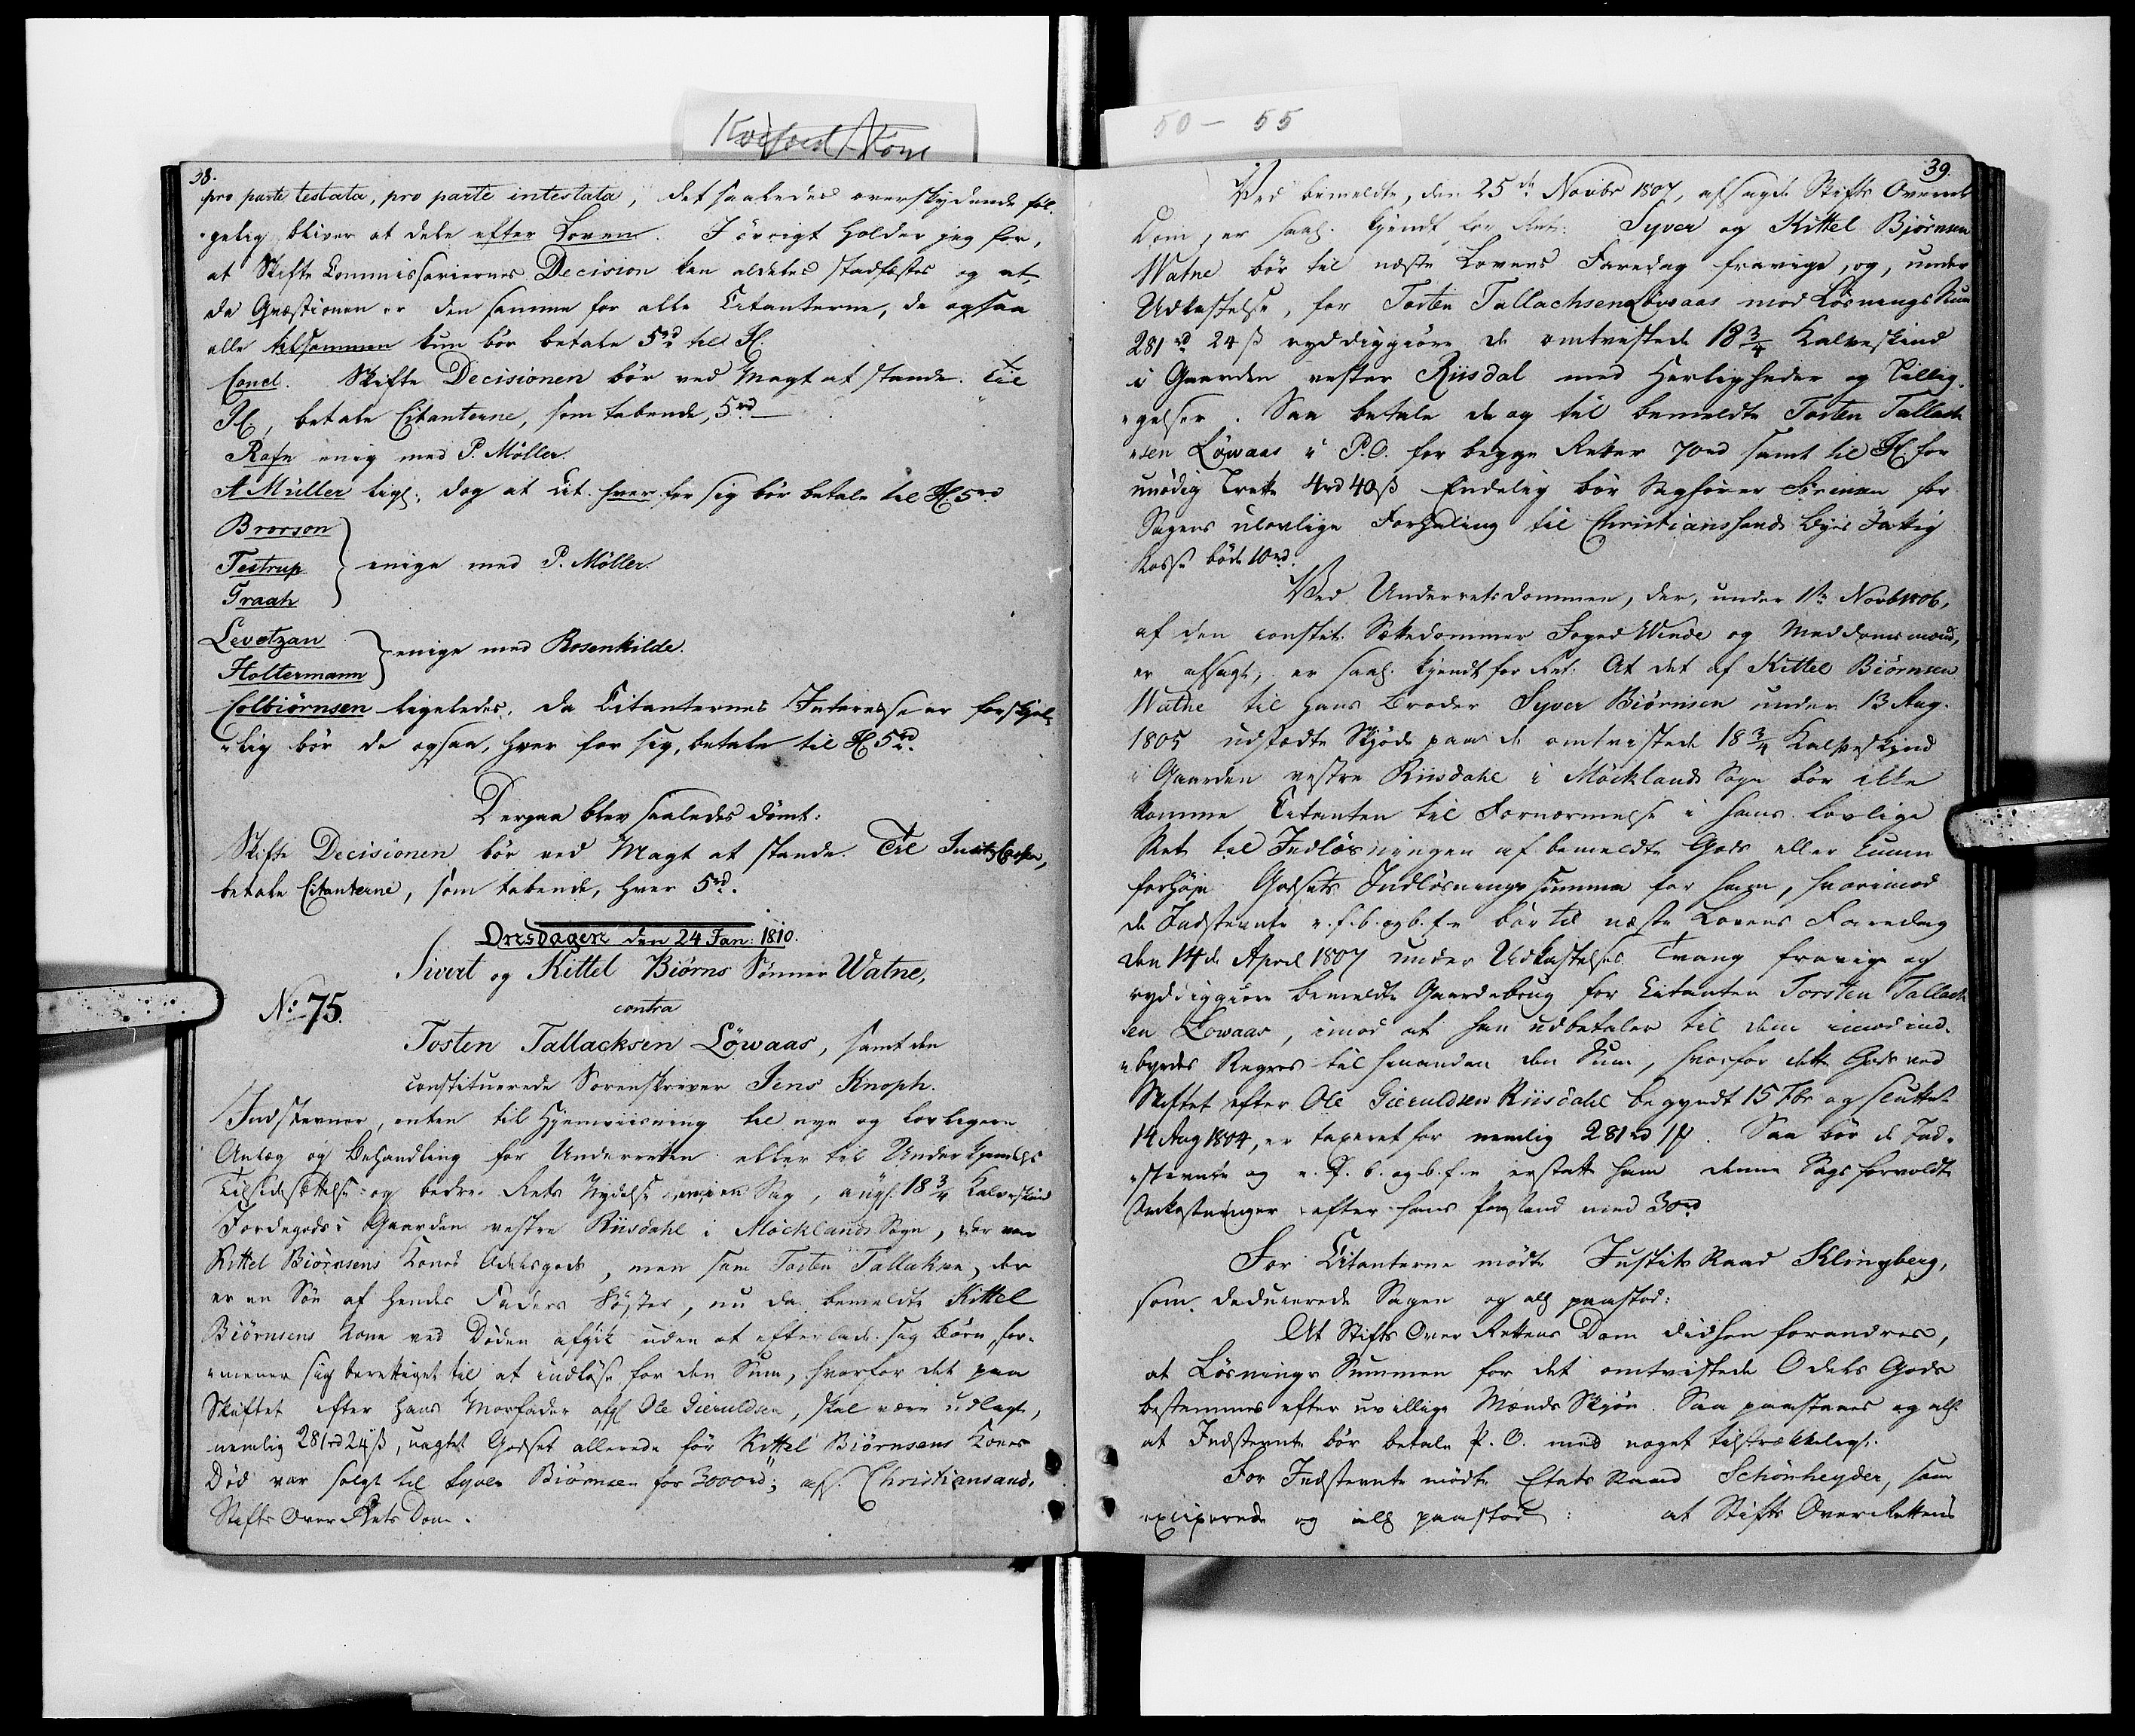 38.
pro parte testata, pro parte intestata, det saaledes overskydende føl-
gelig bliver at dele efter Loven. I övrigt holder jeg for,
at Skifte Commissariernes Decision kan aldeles stadfæstes og at,
da Qvæstionen er den samme for alle Citanterne, de ogsaa
alle tilsammen kun bör betale 5rd til H.
Concl. Skifte Decisionen bör ved Magt at stande. Til
H, betale Citanterne, som tabende, 5rd
Rafn enig med P. Möller.
A Müller lig; dog at Cit. hver for sig bör betale til H. 5rd
Brorson
Testrup enige med P. Möller.
Fraah
Levetzau
Holtermann enige med Rosenkilde.
Colbiörnsen ligeledes; da Citanternes Interesse er forskjel-
lig bör de ogsaa, hver for sig, betale til H 5rd.
Derpaa blev saaledes dömt:
Skifte Decisionen bör ved Magt at stande. Til Justitskassen,
betale Citanterne, som tabende, hver 5rd.
Onsdagen den 24 Jan: 1810.
Sivert og Kittel Biörns Sönner Watne,
No. 75. contra
Tosten Tallacksen Löwaas, samt den
constituerede Sorenskriver Jens Knoph.
Indstevner, enten til Hjemviisning til nye og lovligere
Anlæg og Behandling for Underretten eller til Underkjendelse
Tilsidesættelse og bedre Rets Nydelse en Sag, ang. 18 3/4 Kalveskind
Jordegods i Gaarden vestre Riisdahl i Mocklands Sogn, der var
Kittel Biörnsens Kones Odelsgods, men som Tosten Tallaksen, der
er en Sön af hendes Faders Söster, nu da bemeldte Kittel
Biörnsens Kone ved Döden afgik uden at efterlade sig Börn, for-
mener sig berettiget til at indlöse for den Sum, hvorfor det paa
Skiftet efter hans Morfader afg. Ole Gieruldsen, skal være udlagt,
nemlig 281rd 24ß, uagtet Godset allerede för Kittel Biörnsens Kones
Död var solgt til Syver Biörnsen for 3000rd; af Christiansand,
Stifts Over Rets Dom.
39.
Ved bemeldte, den 25de Novbr 1807, afsagde Stifts Overrets
Dom, er saal. kjendt for Ret: Syver og Kittel Bjørnsen
Watne bör til næste Lovens Faredag fravige, og, under
Udkastelse, for Tosten Tallachsen Löwaas mod Lösnings Sum
281rd 24ß ryddiggiöre de omtvistede 18 3/4 Kalveskind
i Gaarden vester Riisdal med Herligheder og Tillig-
gelser. Saa betale de og til bemeldte Tosten Tallach
sen Löwaas i P.O. for begge Retter 70rd samt til H. for
unödig Trette 4rd 40ß Endelig bör Sagförer Sörensen for
Sagens ulovlige Forhaling til Christianssands Byes Fattig
Kasse böde 10rd.
Ved Underretsdommen, der, under 11te Novb 1806,
af den constit. Sættedommer Foged Winde og Meddomsmænd,
er afsagt, er saal. kjendt for Ret: At det af Kittel Biörnsen
Watne til hans Broder Syver Biörnsen under 13 Aug.
1805 udstædte Skjöde paa de omtvistede 18 3/4 Kalveskind
i Gaarden vestre Riisdahl i Möcklands Sogn bör ikke
komme Citanten til Fornærmelse i hans lovlige
Ret til Indlösningen af bemeldte Gods eller kunne
forhöje Godsets Indlösnings Summa for ham, hvorimod
de Indstevnte e. f. b. og b. f. e bör til næste Lovens Faredag
den 14de April 1807 under Udkastelses Tvang fravige og
ryddiggiöre bemeldte Gaardebrug for Citanten Torsten Tallach
sen Lowaas, imod at han udbetaler til dem imod ind-
byrdes Regres til hinanden den Sum, hvorfor dette Gods ved
Skiftet efter Ole Gieruldsen Riisdahl begyndt 15 Fbr og sluttet
14 Aug 1804, er taxeret for nemlig 281rd 1ß. Saa bör de Ind-
stevnte og e. f. b. og b. f. e erstatte ham denne Sags forvoldte
Omkostninger efter hans Paastand med 30rd
For Citanterne mödte Justits Raad Klingberg,
som deducerede Sagen og all paastod:
At Stifts Over Rettens Dom forandres,
at Lösnings Summen for det omtvistede Odels Gods
bestemmes efter uvillige Mænds Skjön. Saa paastaaes og all
at Indstevnte bör betale P. O. med noget tilstrækkeligt.
For Indstevnte mödte Etats Raad Schönheyder, som
exciperede og all paastod: at Stifts Over Rettens